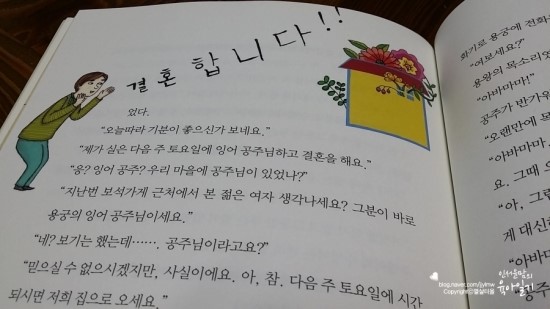 결혼합니다!!
었다.
"오늘따라 기분이 좋으신가 보네요."
"제가 실은 다음 주 토요일에 잉어 공주님하고 결혼을 해요."
"응? 잉어 공주? 우리 마을에 공주님이 있었나?"
"지난번 보석가게 근처에서 본 젊은 여자 생각나세요? 그분이 바로
용궁의 잉어 공주님이세요."
"네? 보기는 했는데…… 공주님이라고요?"
"믿으실 수 없으시겠지만, 사실이에요. 아, 참. 다음 주 토요일에 시간
되시면 저희 집으로 오세요."
화기로 용궁에 전화
"여보세요?"
용왕의 목소리였
"아바마마!"
공주가 반가우
"오랜만에 목
"아바마마.
요. 그때 오
"아, 그럼
게 대신
"아바
"공주
육아일기
blog.naver.com/jylhw